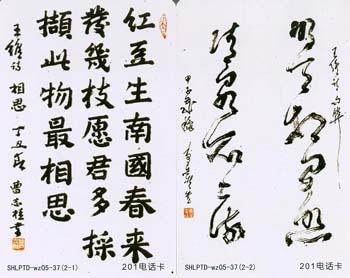 红豆生南國春来
發幾枝愿君多採
撷此物最相思
王維詩 相思 丁丑春 曹志桂書
SHLPTD-wz05-37(2-1)
201电话卡
王维诗句
明月松间照
清泉石上流
SHLPTD-wz05-37(2-2)
201电话卡